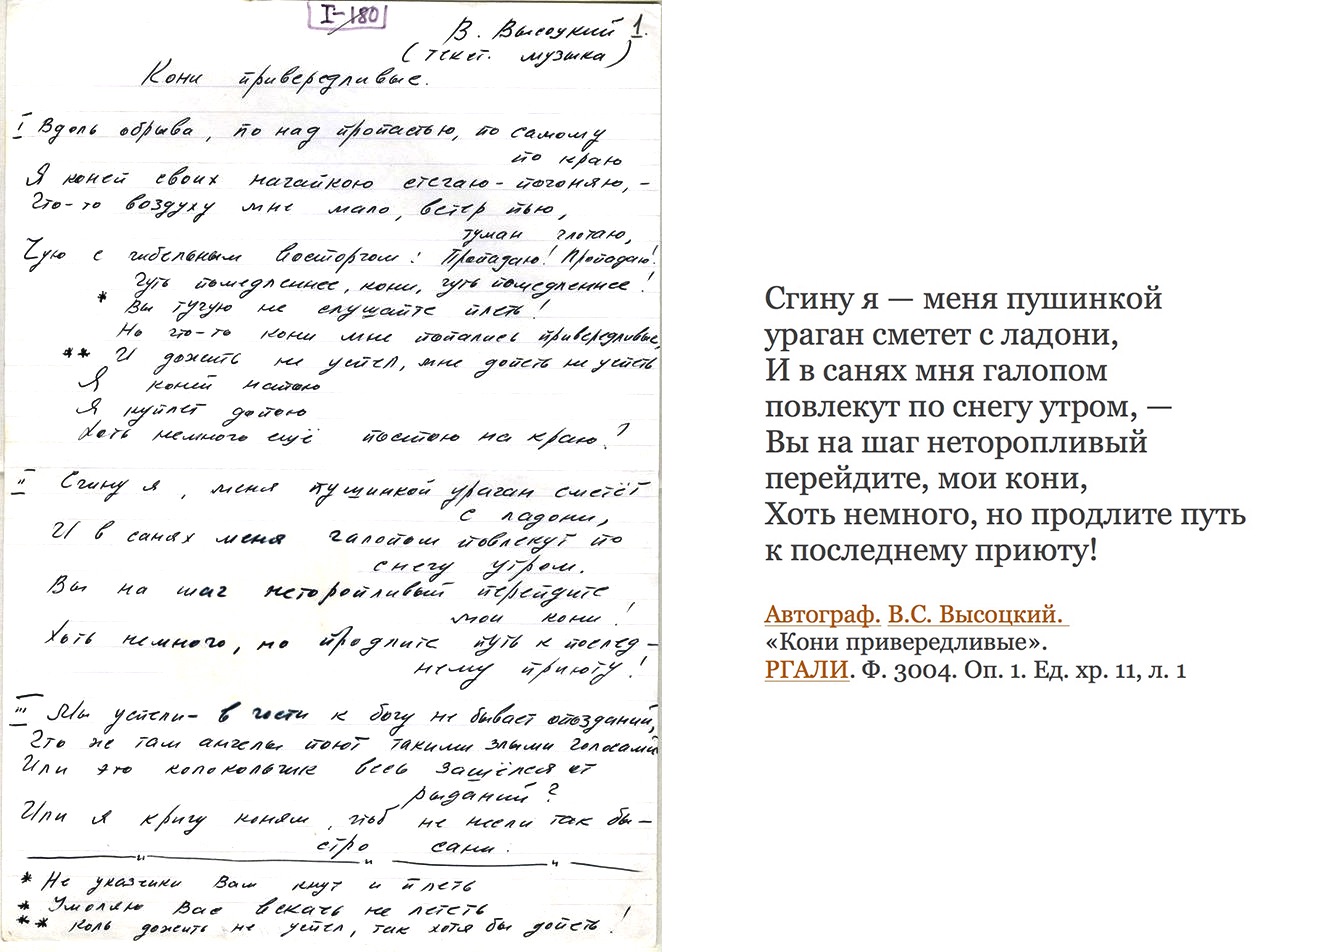 I-180
В. Высоцкий 1.
(текст. музыка)
Кони привередливые.
I Вдоль обрыва, по над пропастью, по самому
по краю
Я коней своих нагайкою стегаю-погоняю, -
Что-то воздуху мне мало, ветер пью,
туман глотаю,
Чую с гибельным восторгом: Пропадаю! Пропадаю!
Чуть помедленнее, кони, чуть помедленнее!
* Вы тугую не слушайте плеть!
Но что-то кони мне попались привередливые,
** И дожить не успел, мне допеть не успеть
Я коней напою
Я куплет допою
Хоть немного ещё постою на краю?
II Сгину я, меня пушинкой ураган сметёт
с ладони,
И в санях меня галопом повлекут по
снегу утром.
Вы на шаг неторопливый перейдите
мои кони!
Хоть немного, но продлите путь к послед-
нему приюту!
III Мы успели- в гости к богу не бывает опозданий,
Что же там ангелы поют такими злыми голосами
Или это колокольчик весь зашёлся от
рыданий?
Или я кричу коням, чтоб не несли так бы-
стро сани.
* Не указчики Вам кнут и плеть
* Умоляю Вас вскачь не лететь
** Коль дожить не успел, так хотя бы допеть!
Сгину я — меня пушинкой
ураган сметет с ладони,
И в санях мня галопом
повлекут по снегу утром, —
Вы на шаг неторопливый
перейдите, мои кони,
Хоть немного, но продлите путь
к последнему приюту!
Автограф. В.С. Высоцкий.
«Кони привередливые».
РГАЛИ. Ф. 3004. Оп. 1. Ед. хр. 11, л. 1